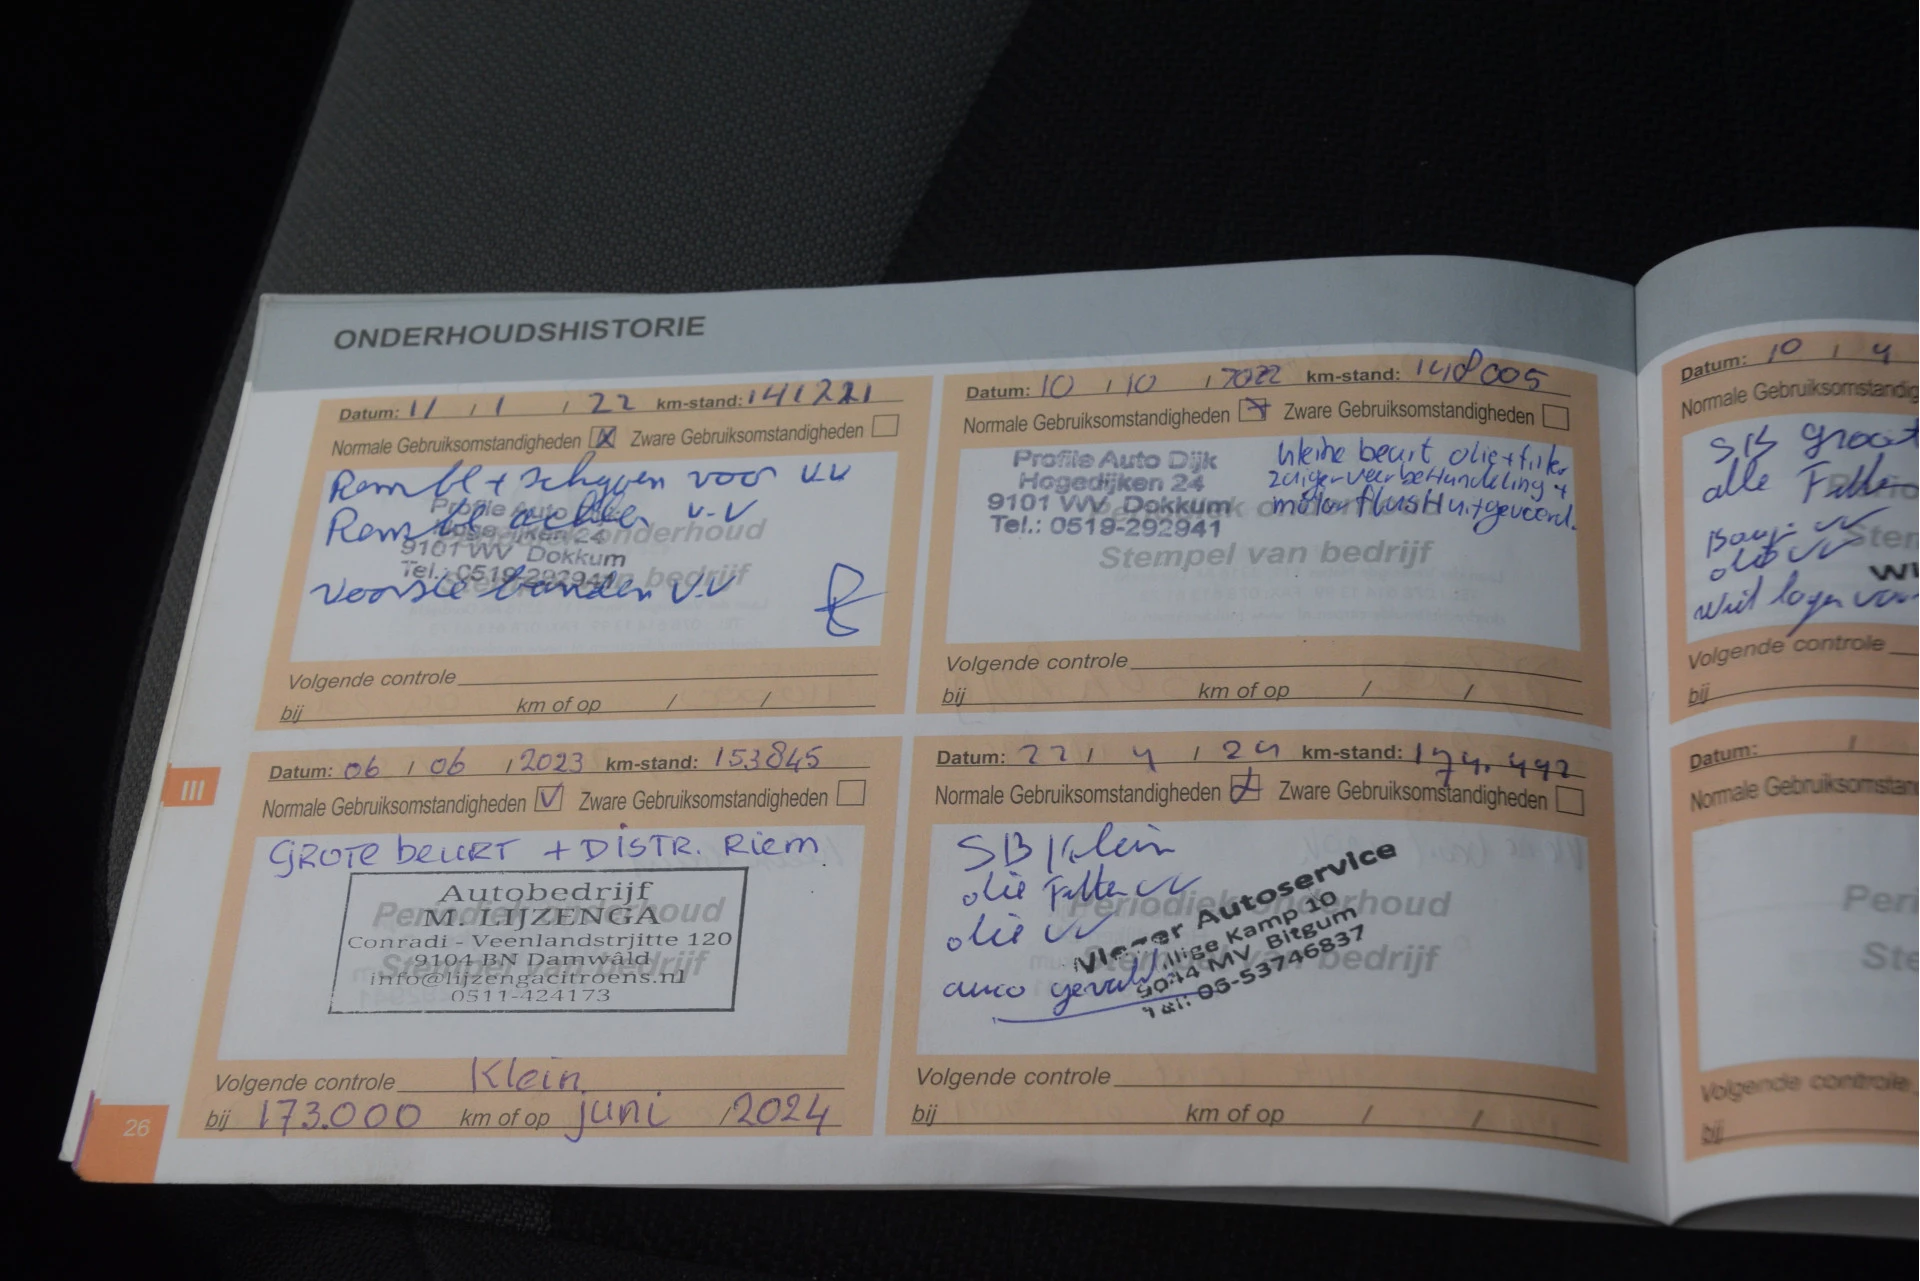 ONDERHOUDSHISTORIE
Datum: 11 / 1 / 22 km-stand: 141221
Normale Gebruiksomstandigheden Zware Gebruiksomstandigheden
Rembl + schijven voor v.v
Rembl achter v.v
Profile Auto Dijk
9101 WV Dokkum
Tel.: 0519-292941
Periodiek onderhoud
Stempel van bedrijf
Voorste banden v.v
Volgende controle
bij km of op / /
Datum: 10 / 10 / 2022 km-stand: 148005
Normale Gebruiksomstandigheden Zware Gebruiksomstandigheden
Profile Auto Dijk
Hogedijken 24
9101 WV Dokkum
Tel.: 0519-292941
kleine beurt olie+filter
zuigerveerbehandeling +
motor flusH uitgevoerd.
Stempel van bedrijf
Volgende controle
bij km of op / /
Datum: 06 / 06 / 2023 km-stand: 153845
Normale Gebruiksomstandigheden Zware Gebruiksomstandigheden
GROTE beURT + DiSTR. Riem
Autobedrijf
M. LIJZENGA
Conradi - Veenlandstrjitte 120
9104 BN Damwâld
info@lijzengacitroens.nl
0511-424173
Periodiek onderhoud
Stempel van bedrijf
Volgende controle Klein
bij 173.000 km of op juni / 2024
Datum: 22 / 4 / 24 km-stand: 174.492
Normale Gebruiksomstandigheden Zware Gebruiksomstandigheden
SB Klein
olie Filter vv
olie vv
Autoservice
Kamp 10
MV Bitgum
Tel: 06-53746837
Periodiek onderhoud
Stempel van bedrijf
Volgende controle
bij km of op / /
III
26
Datum: 10 / 4
Normale Gebruiksomstandig
SB groot
alle
olie vv
Volgende controle
bij
Datum: /
Normale Gebruiksomstan
Peri
Ste
Volgende controle
bij